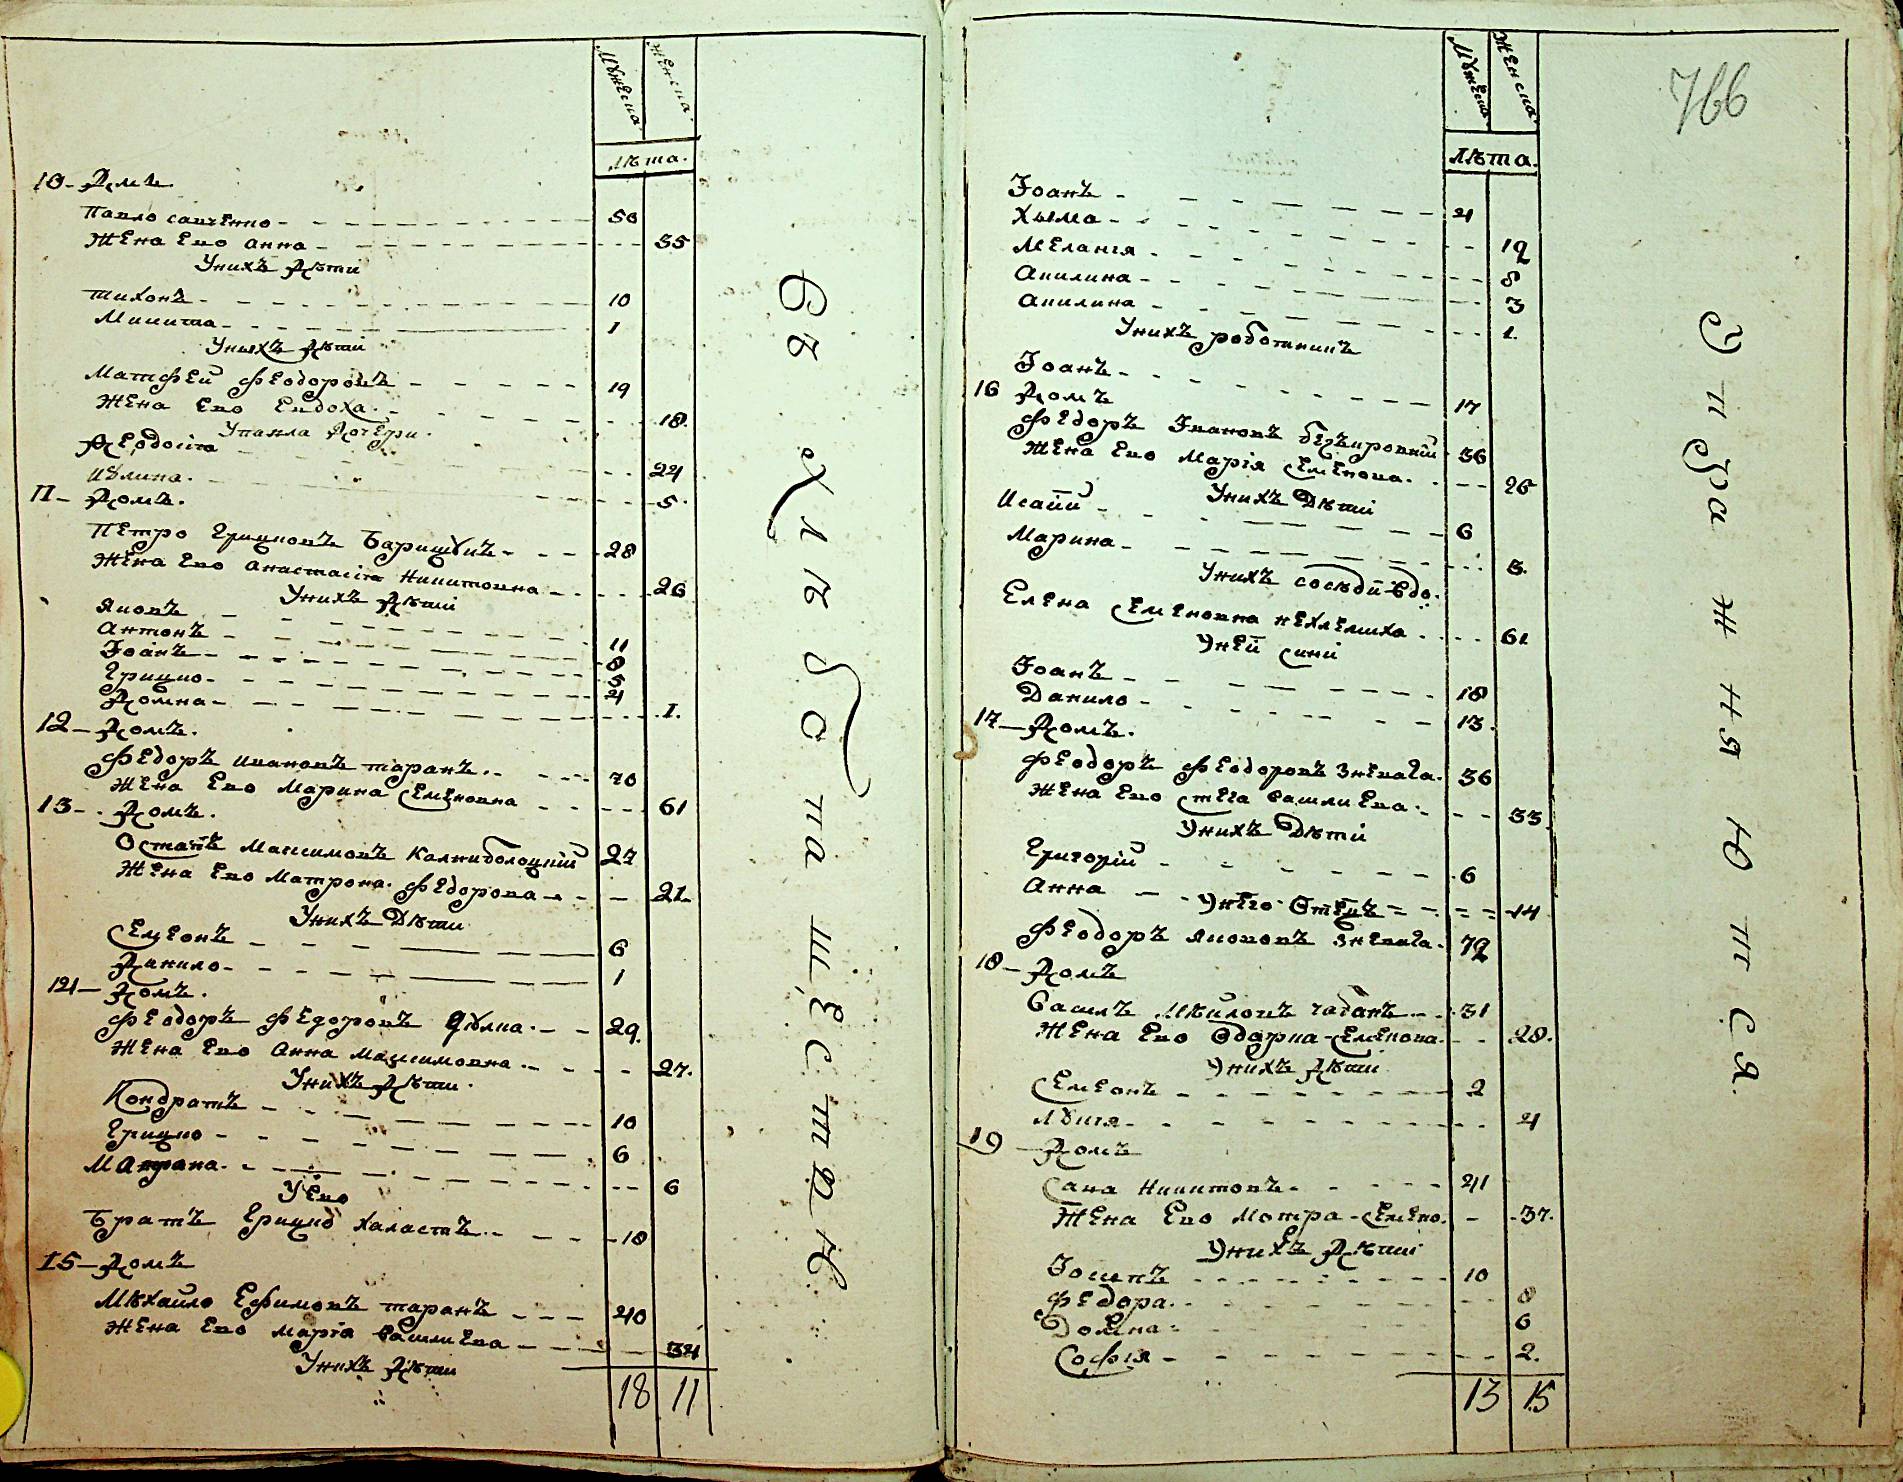 Мужеска Женска
Лѣта.
10- Домъ.
Павло савченко 50
Жена Его Анна 35
Унихъ Дѣти
Тихонъ 10
Микита 1
Унихъ Дѣти
Матфей Феодоровъ 19
Жена Его Евдоха 18.
Упавла Дочери.
Феодосіа 24
5.
11- Домъ.
Петро Грицковъ 28
Жена Его Анастасіа Никитовна 26
Унихъ Дѣти
Яковъ 11
Антонъ 8
Іоанъ 5
Грицко 4
Домна 1.
12- Домъ.
Федоръ Ивановъ таранъ 70
Жена Его Марина Семеновна 61
13- Домъ.
Остапъ Максимовъ Калниболоцкий 27
Жена Его Матрона Федорова 21.
Унихъ Дѣти
Семенъ 6
Данило 1
14- Домъ.
Феодоръ Федоровъ 29.
Жена Его Анна Максимовна 27.
Унихъ Дѣти.
Кондратъ 10
Грицко 6
Матрана 6
У Его
Братъ Грицко Халастъ 18
15- Домъ
Мѣхайло Ефимовъ таранъ 40
Жена Его Маріа Василиева 34
Унихъ Дѣти
18 11
въ Хлѣбопашествѣ
766
Мужеска Женска
Лѣта.
Іоанъ 4
Хыма 12
Меланія 8
Акилина 3
Акилина 1.
Унихъ роботникъ
Іоанъ 17
16 Домъ
Федоръ Ивановъ 36
Жена Его Марія Семенова 26
Унихъ Дѣти
Исаий 6
Марина 3.
Унихъ сосѣди
Елена Семеновна 61
Уней сини
Іоанъ 18
Данило 13.
17- Домъ.
Феодоръ Феодоровъ 36
Жена Его Василиева 33
Унихъ Дѣти
Григорій 6
Анна 14
Унего Отецъ
Феодоръ Якововъ 72
18- Домъ
Василь чабанъ 31
Жена Его Одарка Семенова 28.
Унихъ Дѣти
Семенъ 2
4
19 Домъ
Сава Никитовъ 41
Жена Его Мотра Семено. 37.
Унихъ Дѣти
Іосипъ 10
Федора 8
Домна 6
Софія 2.
13 15
Упражняются.